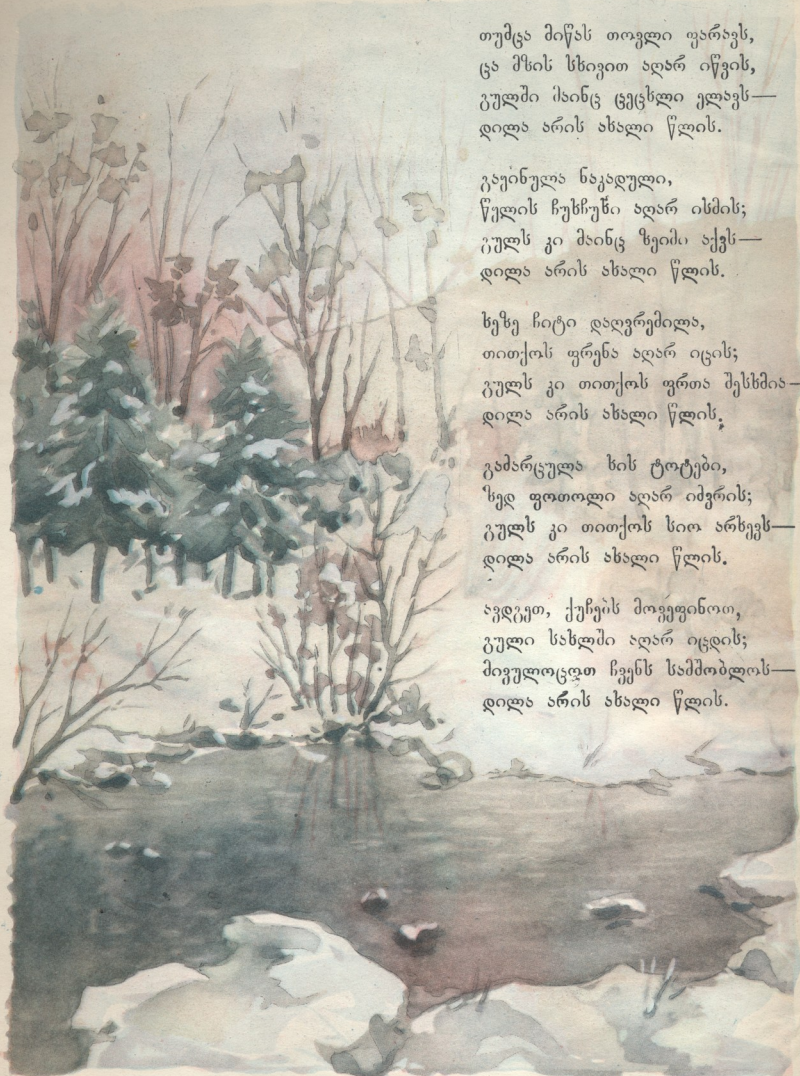 თუმცა მიწას თოვლი ფარავს,
ცა მზის სხივით აღარ იწვის,
გულში მაინც ცეცხლი ელავს—
დილა არის ახალი წლის.
გაყინულა ნაკადული,
წყლის ჩუხჩუხი აღარ ისმის;
გულს კი მაინც ზეიმი აქვს—
დილა არის ახალი წლის.
ხეზე ჩიტი დაღვრემილა,
თითქოს ფრენა აღარ იცის;
გულს კი თითქოს ფრთა შესხმია—
დილა არის ახალი წლის.
გამარცულა ხის ტოტები,
ზედ ფოთოლი აღარ იძვრის;
გულს კი თითქოს სიო არხევს—
დილა არის ახალი წლის.
ავდგეთ, ქუჩებს მოვეფინოთ,
გული სახლში აღარ იცდის;
მივულოცოთ ჩვენს სამშობლოს—
დილა არის ახალი წლის.